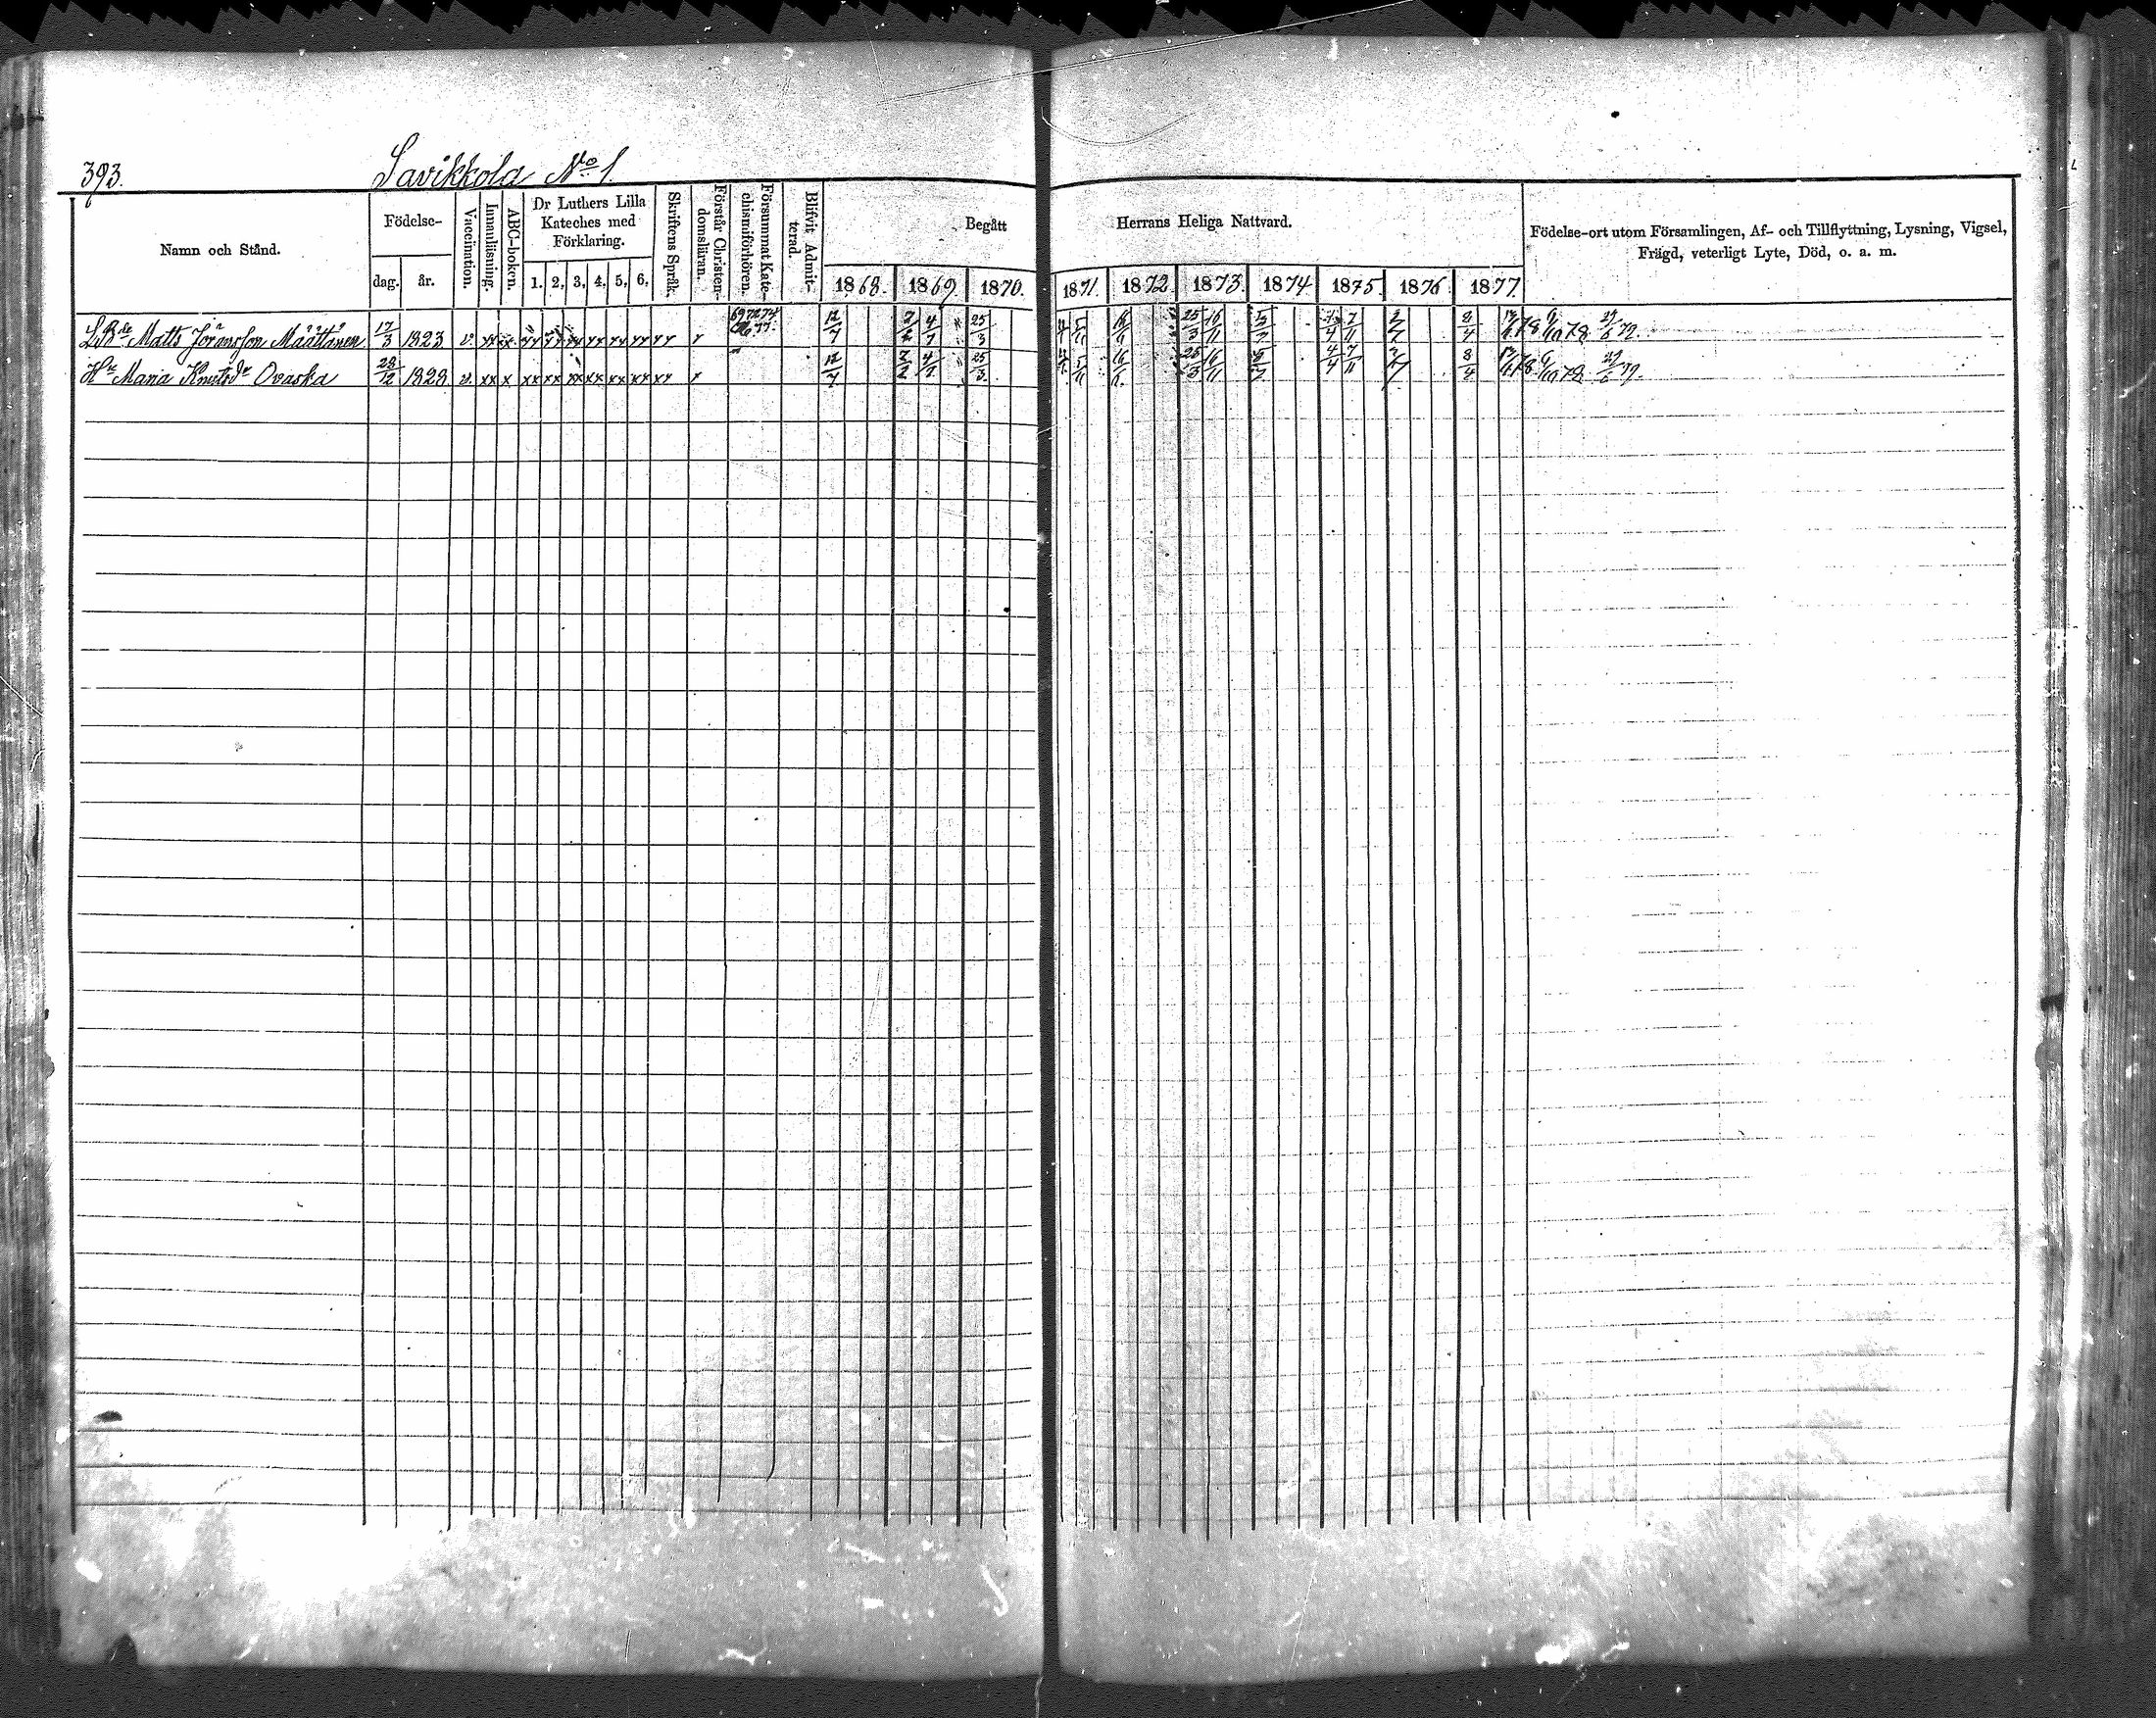 393.
Savikkola No 1.
Namn och Stånd.
Födelse-
dag. år.
Vaccination.
Innanläsning.
ABC-boken.
Dr Luthers Lilla
Kateches med
Förklaring.
1. 2. 3. 4. 5. 6.
Skriftens Språk.
Förstår Christen-
domsläran.
Försummat Kate-
chismiförhören.
Blifvit Admit-
terad.
Begått Herrans Heliga Nattvard.
1868. 1869. 1870. 1871. 1872. 1873. 1874. 1875. 1876. 1877.
Födelse-ort utom Församlingen, Af- och Tillflyttning, Lysning, Vigsel,
Frägd, veterligt Lyte, Död, o. a. m.
Matts Göransson Määttänen 17/3 1823 v. xx xx xx xx xx xx xx xx xx x 12/7 4/7 25/3 16/11 25/3 16/11 4/4 7/11 8/4
Hu Maria Knutsdr Ovaska 28/12 1828 v. xx x xx xx xx xx xx xx xx x 12/7 4/7 25/3 5/11 16/11 25/3 16/11 4/4 7/11 8/4